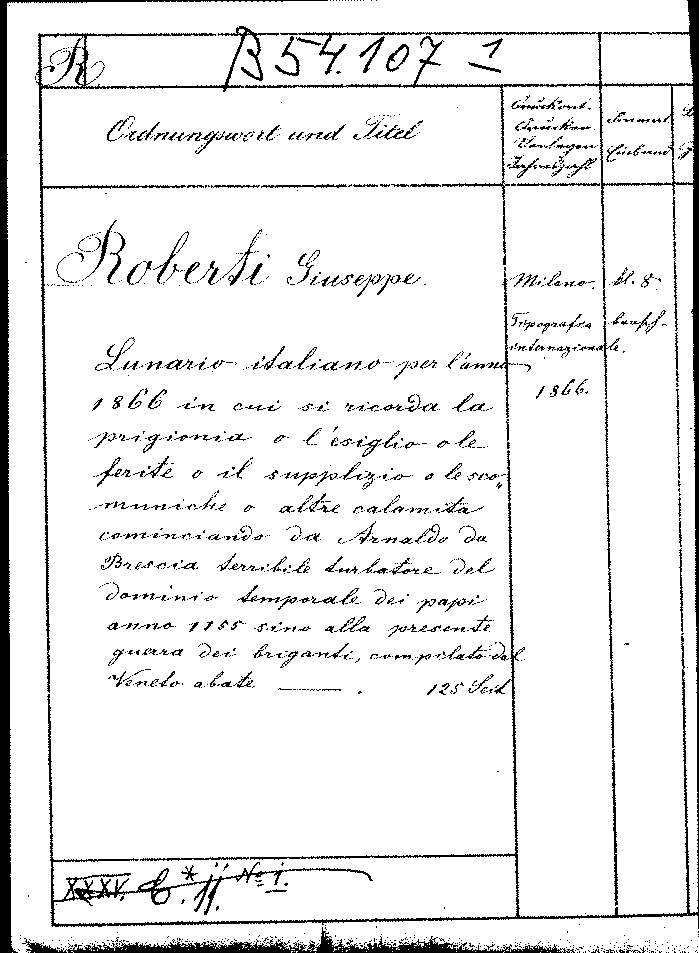 R B 54.107 1
Ordnungswort und Titel
Druckort.
Drucker
Verleger
Jahreszahl
Format
Einband
Roberti Giuseppe.
Milano.
kl. 8.
Tipografia
internazionale.
1866.
brosch.
Lunario italiano per l'anno
1866 in cui si ricorda la
prigionia o l'esiglio o le
ferite o il supplizio o le sco„
muniche o altre calamita
cominciando da Arnaldo da
Brescia terribile turbatore del
dominio temporale dei papi
anno 1155 sino alla presente
guerra dei briganti, compilato dal
Veneto abate ——— . 125 Seit
XXXV. C.* 11. No 1.